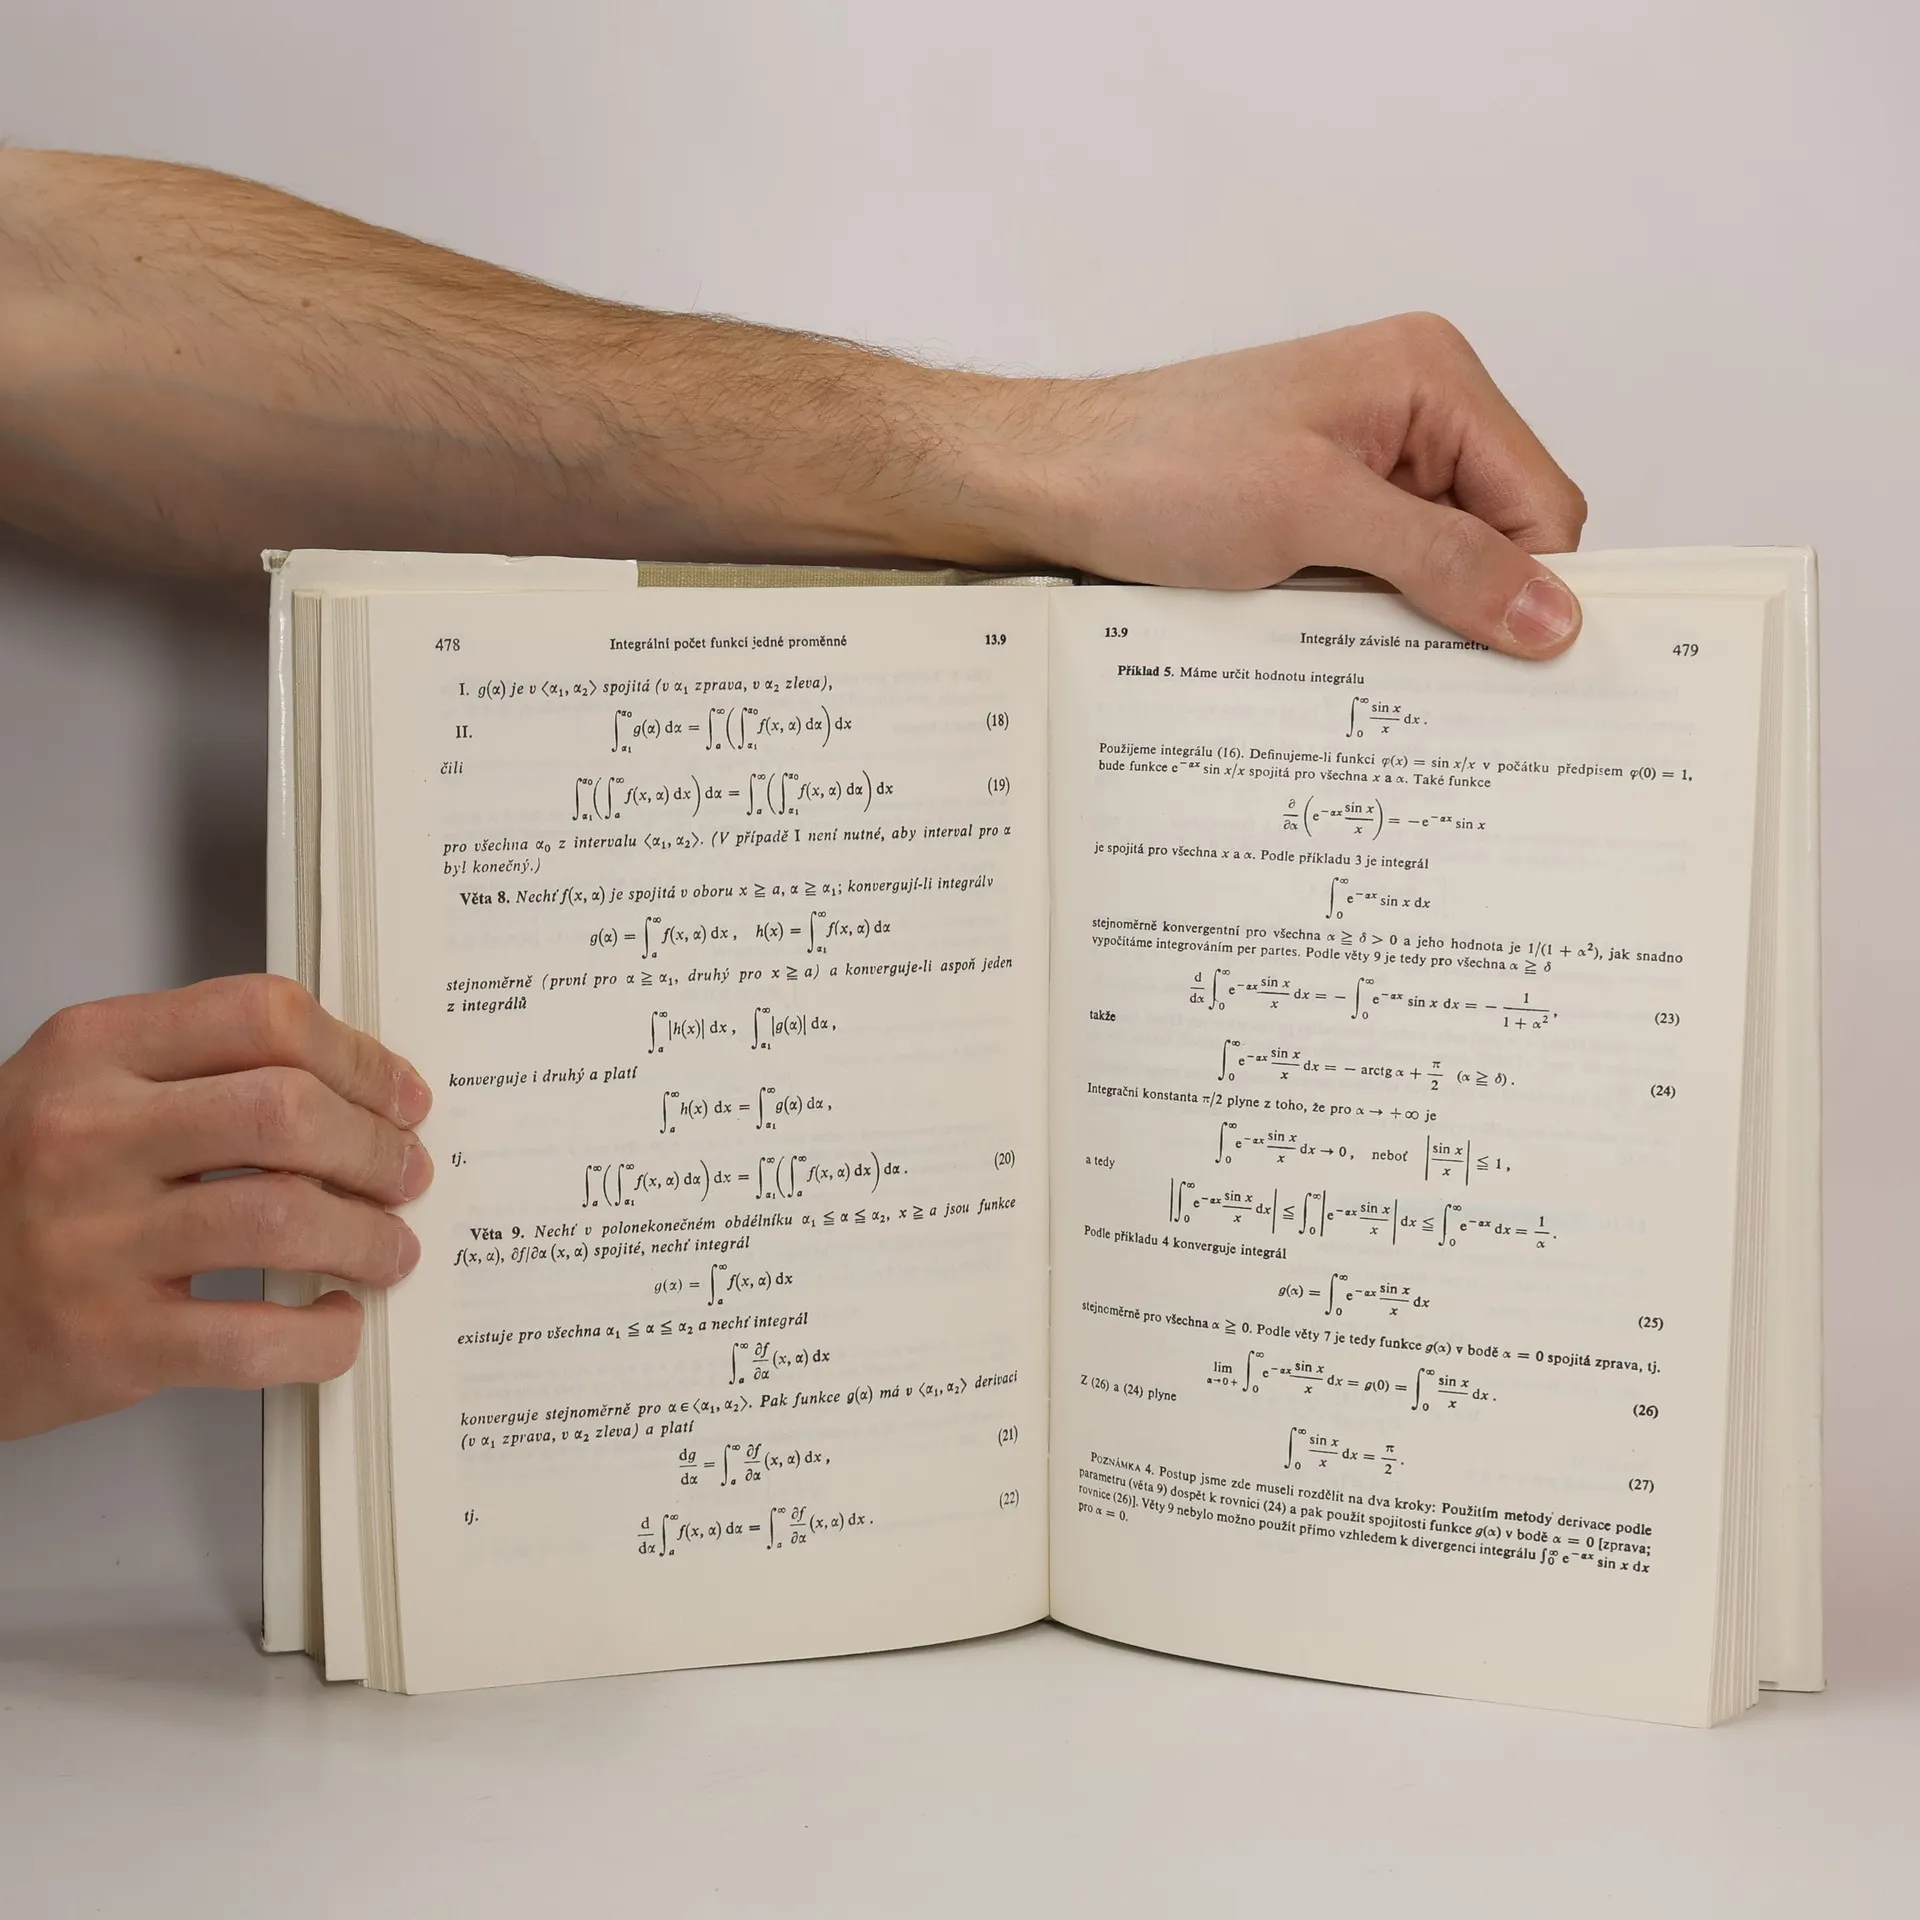 478 Integrální počet funkcí jedné proměnné 13.9
I. g(α) je v ⟨α₁, α₂⟩ spojitá (v α₁ zprava, v α₂ zleva),
II. ∫_{α₁}^{α₀} g(α) dα = ∫_a^∞ (∫_{α₁}^{α₀} f(x, α) dα) dx (18)
čili
∫_{α₁}^{α₀} (∫_a^∞ f(x, α) dx) dα = ∫_a^∞ (∫_{α₁}^{α₀} f(x, α) dα) dx (19)
pro všechna α₀ z intervalu ⟨α₁, α₂⟩. (V případě I není nutné, aby interval pro α
byl konečný.)
Věta 8. Nechť f(x, α) je spojitá v oboru x ≧ a, α ≧ α₁; konvergují-li integrály
g(α) = ∫_a^∞ f(x, α) dx , h(x) = ∫_{α₁}^∞ f(x, α) dα
stejnoměrně (první pro α ≧ α₁, druhý pro x ≧ a) a konverguje-li aspoň jeden
z integrálů
∫_a^∞ |h(x)| dx , ∫_{α₁}^∞ |g(α)| dα ,
konverguje i druhý a platí
∫_a^∞ h(x) dx = ∫_{α₁}^∞ g(α) dα ,
tj.
∫_a^∞ (∫_{α₁}^∞ f(x, α) dα) dx = ∫_{α₁}^∞ (∫_a^∞ f(x, α) dx) dα . (20)
Věta 9. Nechť v polonekonečném obdélníku α₁ ≦ α ≦ α₂, x ≧ a jsou funkce
f(x, α), ∂f/∂α (x, α) spojité, nechť integrál
g(α) = ∫_a^∞ f(x, α) dx
existuje pro všechna α₁ ≦ α ≦ α₂ a nechť integrál
∫_a^∞ ∂f/∂α (x, α) dx
konverguje stejnoměrně pro α ∈ ⟨α₁, α₂⟩. Pak funkce g(α) má v ⟨α₁, α₂⟩ derivaci
(v α₁ zprava, v α₂ zleva) a platí
dg/dα = ∫_a^∞ ∂f/∂α (x, α) dx , (21)
tj.
d/dα ∫_a^∞ f(x, α) dα = ∫_a^∞ ∂f/∂α (x, α) dx . (22)
13.9 Integrály závislé na parametru 479
Příklad 5. Máme určit hodnotu integrálu
∫_0^∞ sin x/x dx .
Použijeme integrálu (16). Definujeme-li funkci φ(x) = sin x/x v počátku předpisem φ(0) = 1,
bude funkce e^{−αx} sin x/x spojitá pro všechna x a α. Také funkce
∂/∂α (e^{−αx} sin x/x) = −e^{−αx} sin x
je spojitá pro všechna x a α. Podle příkladu 3 je integrál
∫_0^∞ e^{−αx} sin x dx
stejnoměrně konvergentní pro všechna α ≧ δ > 0 a jeho hodnota je 1/(1 + α²), jak snadno
vypočítáme integrováním per partes. Podle věty 9 je tedy pro všechna α ≧ δ
d/dα ∫_0^∞ e^{−αx} sin x/x dx = − ∫_0^∞ e^{−αx} sin x dx = − 1/(1 + α²) , (23)
takže
∫_0^∞ e^{−αx} sin x/x dx = − arctg α + π/2 (α ≧ δ) . (24)
Integrační konstanta π/2 plyne z toho, že pro α → +∞ je
∫_0^∞ e^{−αx} sin x/x dx → 0 , neboť |sin x/x| ≦ 1 ,
a tedy
|∫_0^∞ e^{−αx} sin x/x dx| ≦ ∫_0^∞ |e^{−αx} sin x/x| dx ≦ ∫_0^∞ e^{−αx} dx = 1/α .
Podle příkladu 4 konverguje integrál
g(α) = ∫_0^∞ e^{−αx} sin x/x dx (25)
stejnoměrně pro všechna α ≧ 0. Podle věty 7 je tedy funkce g(α) v bodě α = 0 spojitá zprava, tj.
lim_{α→0+} ∫_0^∞ e^{−αx} sin x/x dx = g(0) = ∫_0^∞ sin x/x dx . (26)
Z (26) a (24) plyne
∫_0^∞ sin x/x dx = π/2 . (27)
POZNÁMKA 4. Postup jsme zde museli rozdělit na dva kroky: Použitím metody derivace podle
parametru (věta 9) dospět k rovnici (24) a pak použít spojitosti funkce g(α) v bodě α = 0 [zprava;
rovnice (26)]. Věty 9 nebylo možno použít přímo vzhledem k divergenci integrálu ∫_0^∞ e^{−αx} sin x dx
pro α = 0.